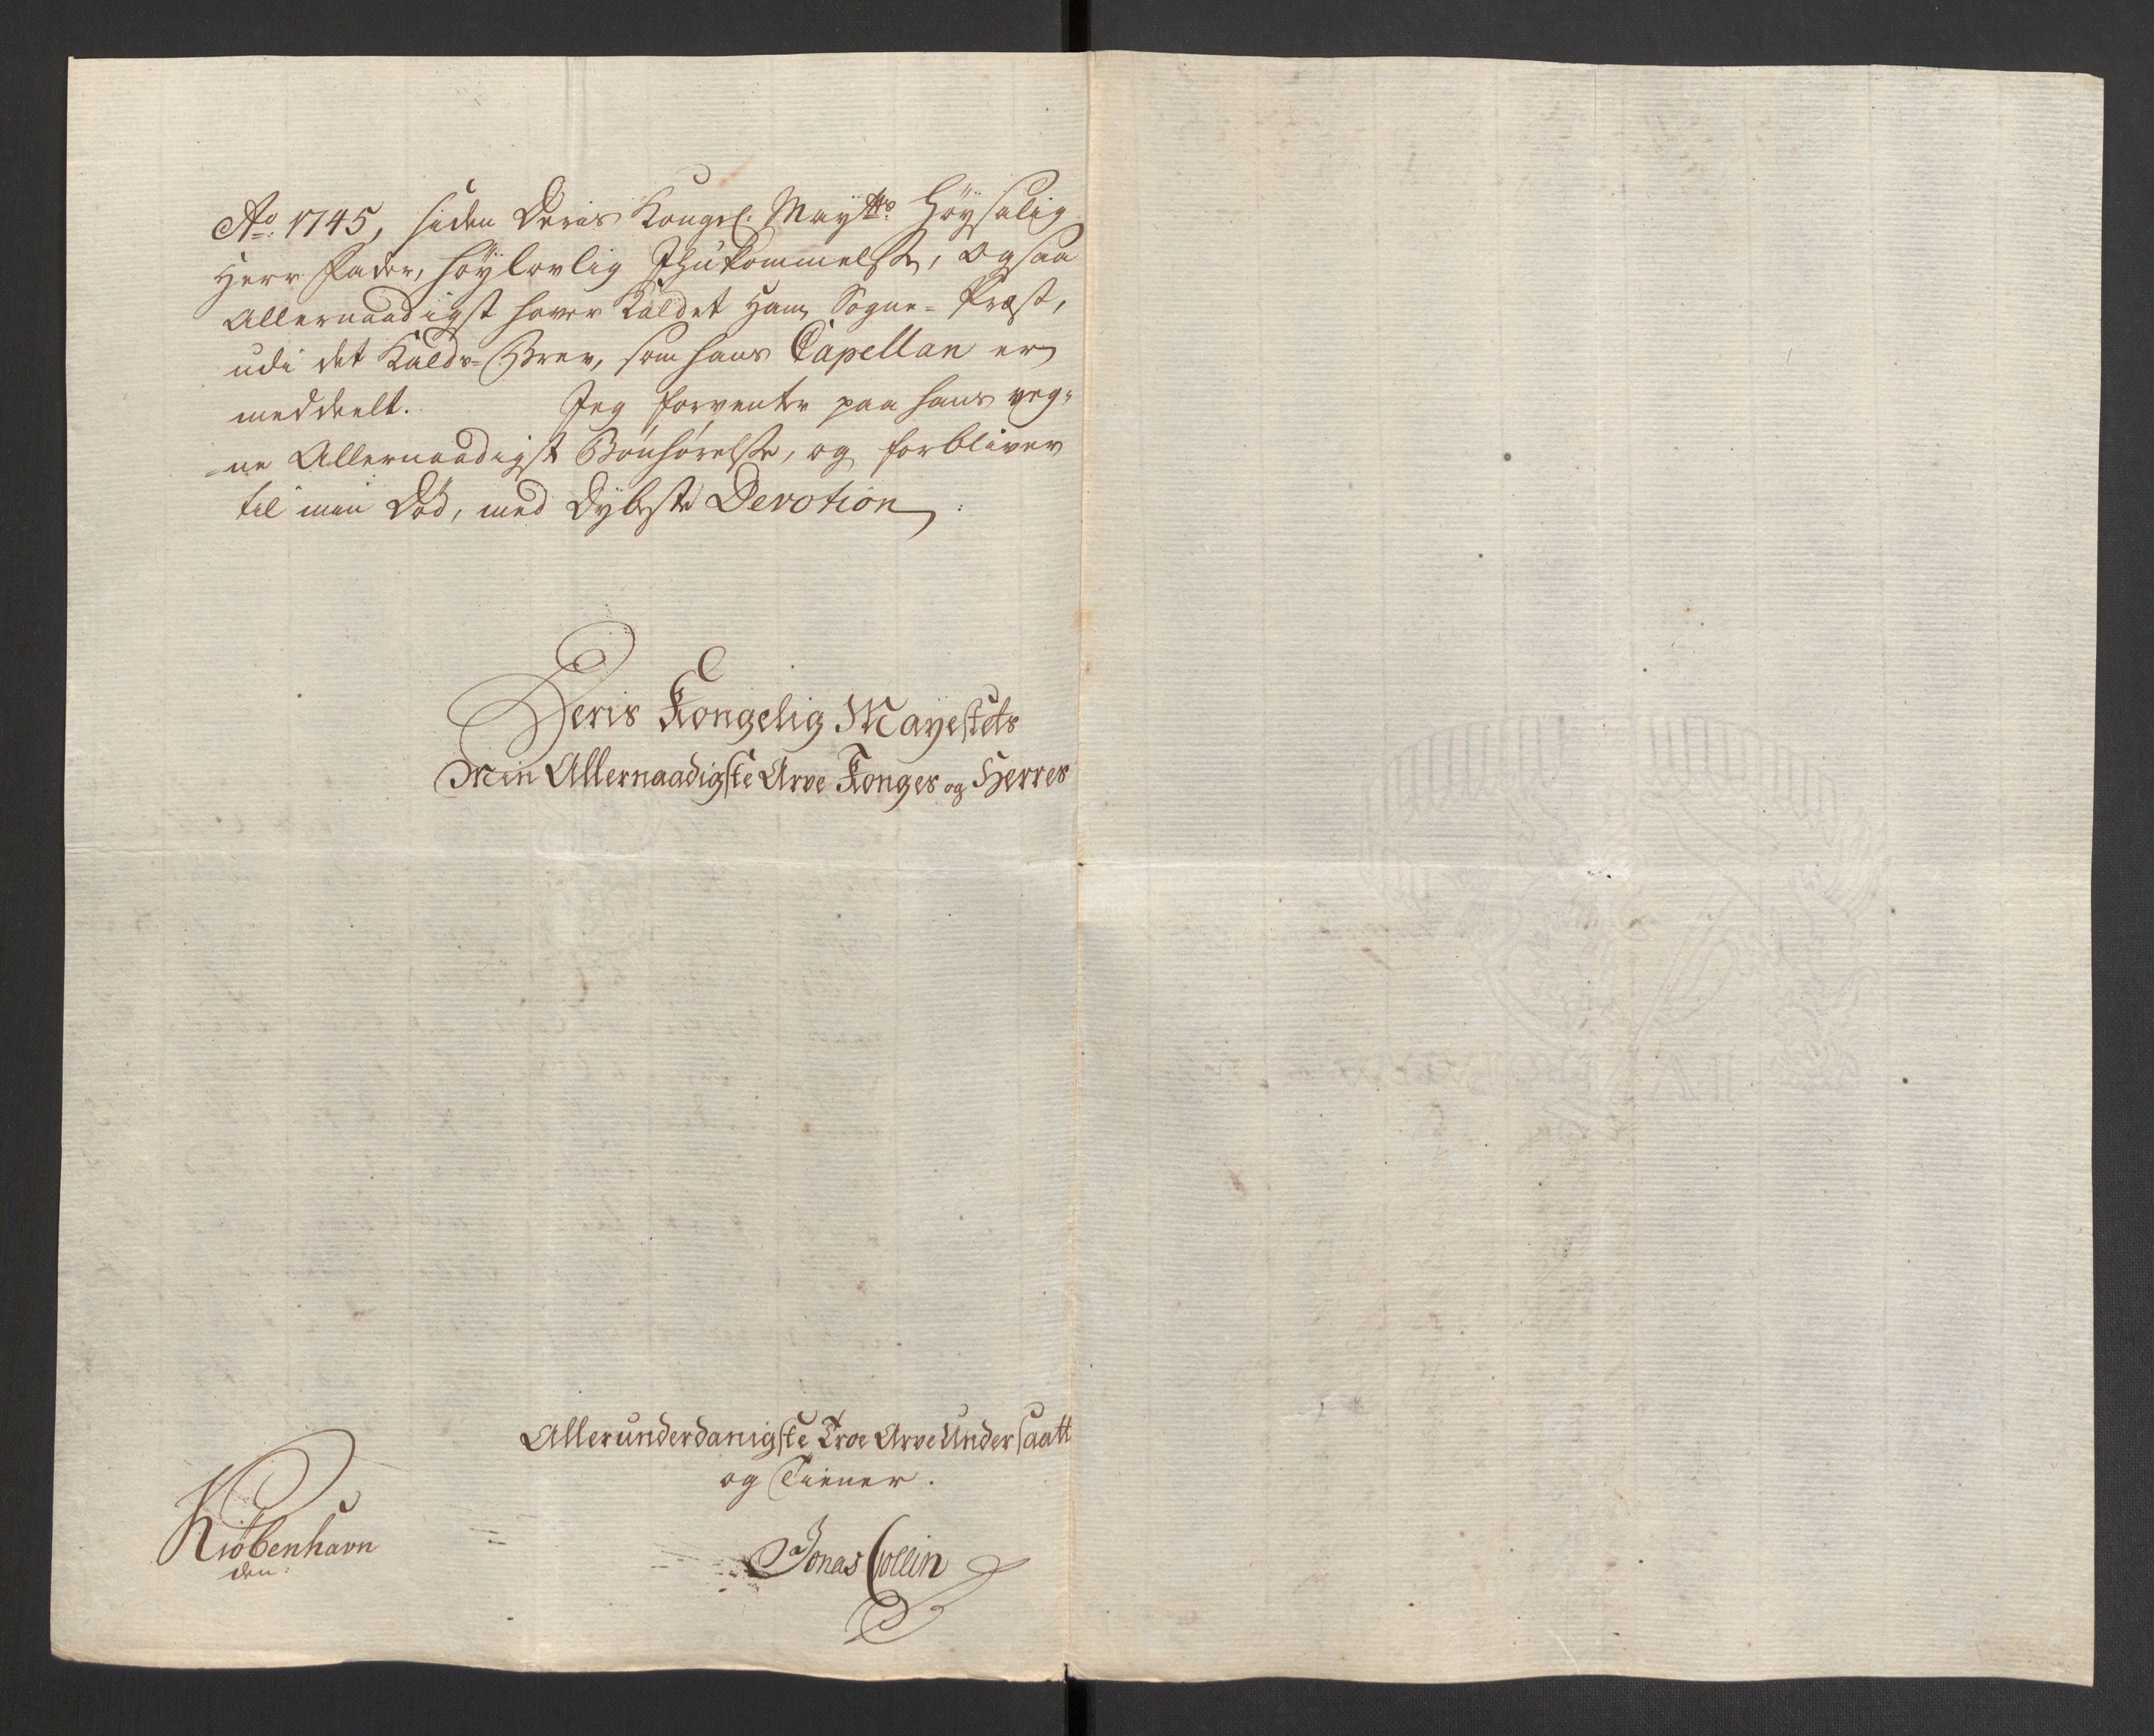 Ao. 1745, siden Deris Kongel. May.tts Höysalig
Herr Fader, höylovlig Ihukommelse, ogsaa
Allernaadigst haver Kaldet Ham Sogne-Præst,
udi det Kalds-Brev, som hans Capellan er
meddeelt. Jeg forventer paa hans veg-
-ne Allernaadigst Bönhörelse, og forbliver
til min Död, med dybeste Devotion
Deris Kongelig Mayestets
Min Allernaadigste Arve Konges og Herres
Allerunderdanigste Troe Arve Undersaatt
og Tiener.
Kiöbenhavn
den:
Jonas Collin